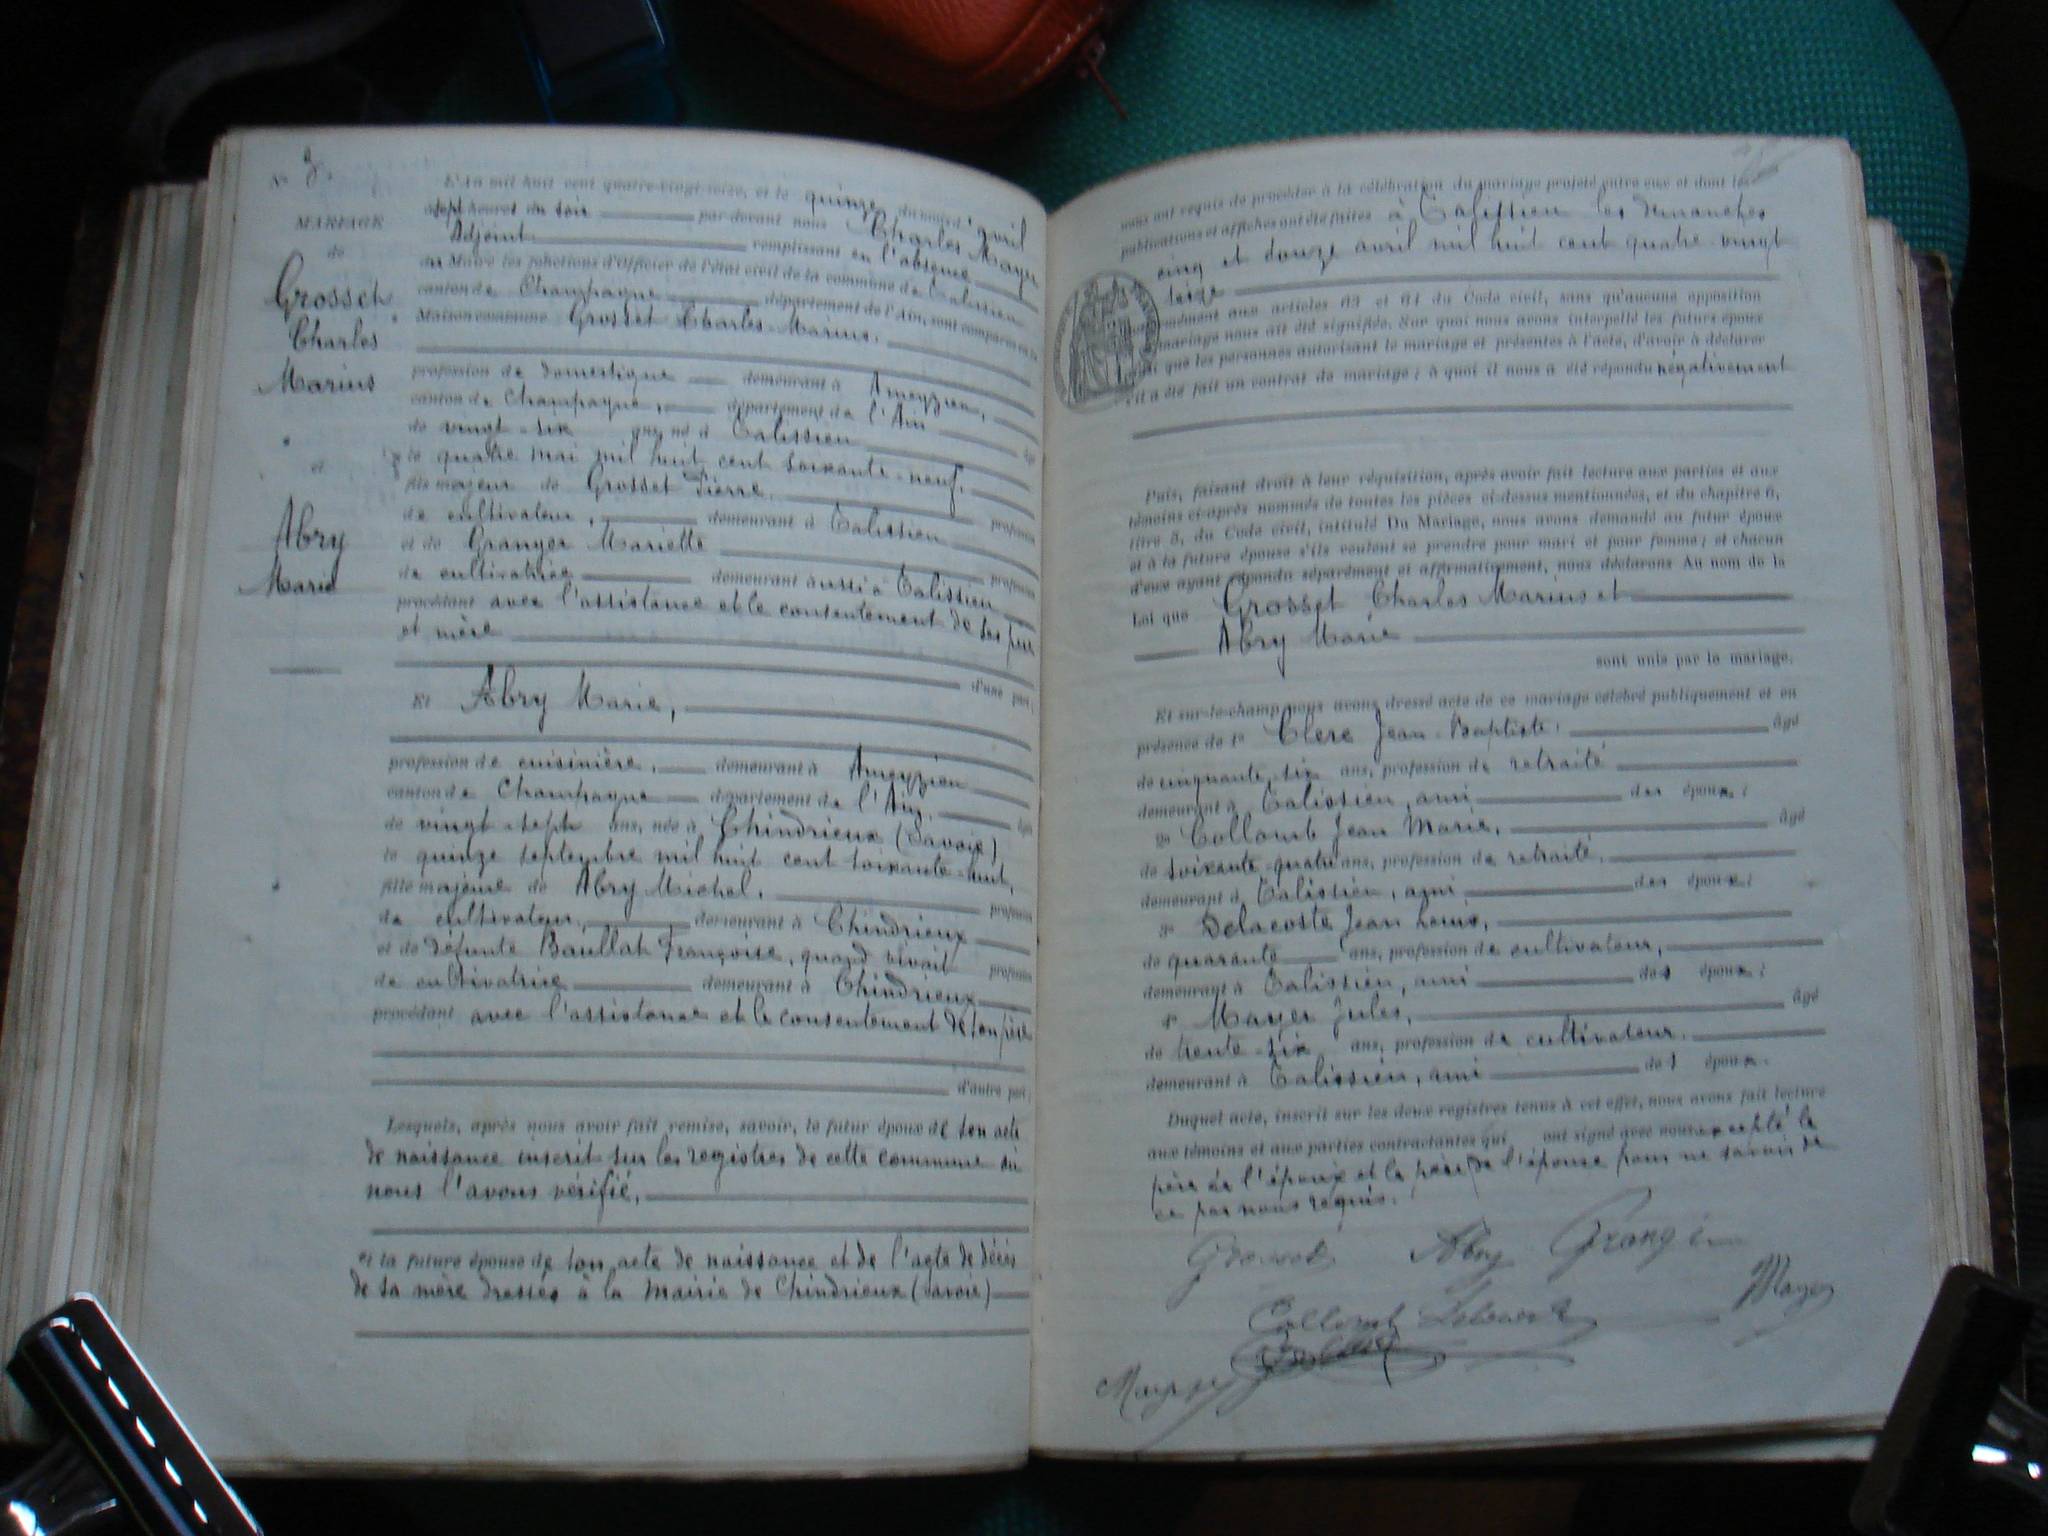 N° 3.
MARIAGE
de
Grosset
Charles
Marius
et
Abry
Marie
L'An mil huit cent quatre-vingt-seize, et le quinze du mois d'avril
sept heures du soir par devant nous Charles Mayer
Adjoint remplissant en l'absence
du Maire les fonctions d'Officier de l'état civil de la commune de Talissieu
canton de Champagne département de l'Ain, sont comparus en la
Maison commune Grosset Charles-Marius.
profession de domestique demeurant à Ameyzieu,
canton de Champagne, département de l'Ain
âgé
de vingt-six ans, né à Talissieu
le quatre mai mil huit cent soixante-neuf.
fils majeur de Grosset Pierre, profession
de cultivateur, demeurant à Talissieu
et de Granger Mariette profession
de cultivatrice demeurant aussi à Talissieu
procédant avec l'assistance et le consentement de ses père
et mère
d'une part;
Et Abry Marie,
profession de cuisinière, demeurant à Ameyzieu
canton de Champagne département de l'Ain, âgée
de vingt-sept ans, née à Chindrieux (Savoie)
le quinze septembre mil huit cent soixante-huit,
fille majeure de Abry Michel, profession
de cultivateur, demeurant à Chindrieux
et de défunte Baullat Françoise, quand vivait profession
de cultivatrice demeurant à Chindrieux
procédant avec l'assistance et le consentement de son père
d'autre part;
Lesquels, après nous avoir fait remise, savoir, le futur époux de son acte
de naissance inscrit sur les registres de cette commune où
nous l'avons vérifié,
et la future épouse de son acte de naissance et de l'acte de décès
de sa mère dressés à la Mairie de Chindrieux (Savoie)
nous ont requis de procéder à la célébration du mariage projeté entre eux et dont les
publications et affiches ont été faites à Talissieu les dimanches
cinq et douze avril mil huit cent quatre-vingt
seize
conformément aux articles 63 et 64 du Code civil, sans qu'aucune opposition
mariage nous ait été signifiée. Sur quoi nous avons interpellé les futurs époux
ainsi que les personnes autorisant le mariage et présentes à l'acte, d'avoir à déclarer
s'il a été fait un contrat de mariage; à quoi il nous a été répondu négativement
Puis, faisant droit à leur réquisition, après avoir fait lecture aux parties et aux
témoins ci-après nommés de toutes les pièces ci-dessus mentionnées, et du chapitre 6,
titre 5, du Code civil, intitulé Du Mariage, nous avons demandé au futur époux
et à la future épouse s'ils veulent se prendre pour mari et pour femme; et chacun
d'eux ayant répondu séparément et affirmativement, nous déclarons Au nom de la
Loi que Grosset Charles Marius et
Abry Marie
sont unis par le mariage.
Et sur-le-champ nous avons dressé acte de ce mariage célébré publiquement et en
présence de 1° Clerc Jean-Baptiste, âgé
de cinquante-six ans, profession de retraité
demeurant à Talissieu, ami des époux;
2° Collomb Jean Marie, âgé
de soixante-quatre ans, profession de retraité,
demeurant à Talissieu, ami des époux;
3° Delacoste Jean Louis,
de quarante ans, profession de cultivateur,
demeurant à Talissieu, ami des époux;
4° Mayer Jules, âgé
de trente-six ans, profession de cultivateur.
demeurant à Talissieu, ami des époux.
Duquel acte, inscrit sur les deux registres tenus à cet effet, nous avons fait lecture
aux témoins et aux parties contractantes qui ont signé avec nous excepté le
père de l'époux et le père de l'épouse pour ne savoir de
ce par nous requis.
Grosset Abry Granger
Collomb Delacoste Mayer
Mayer